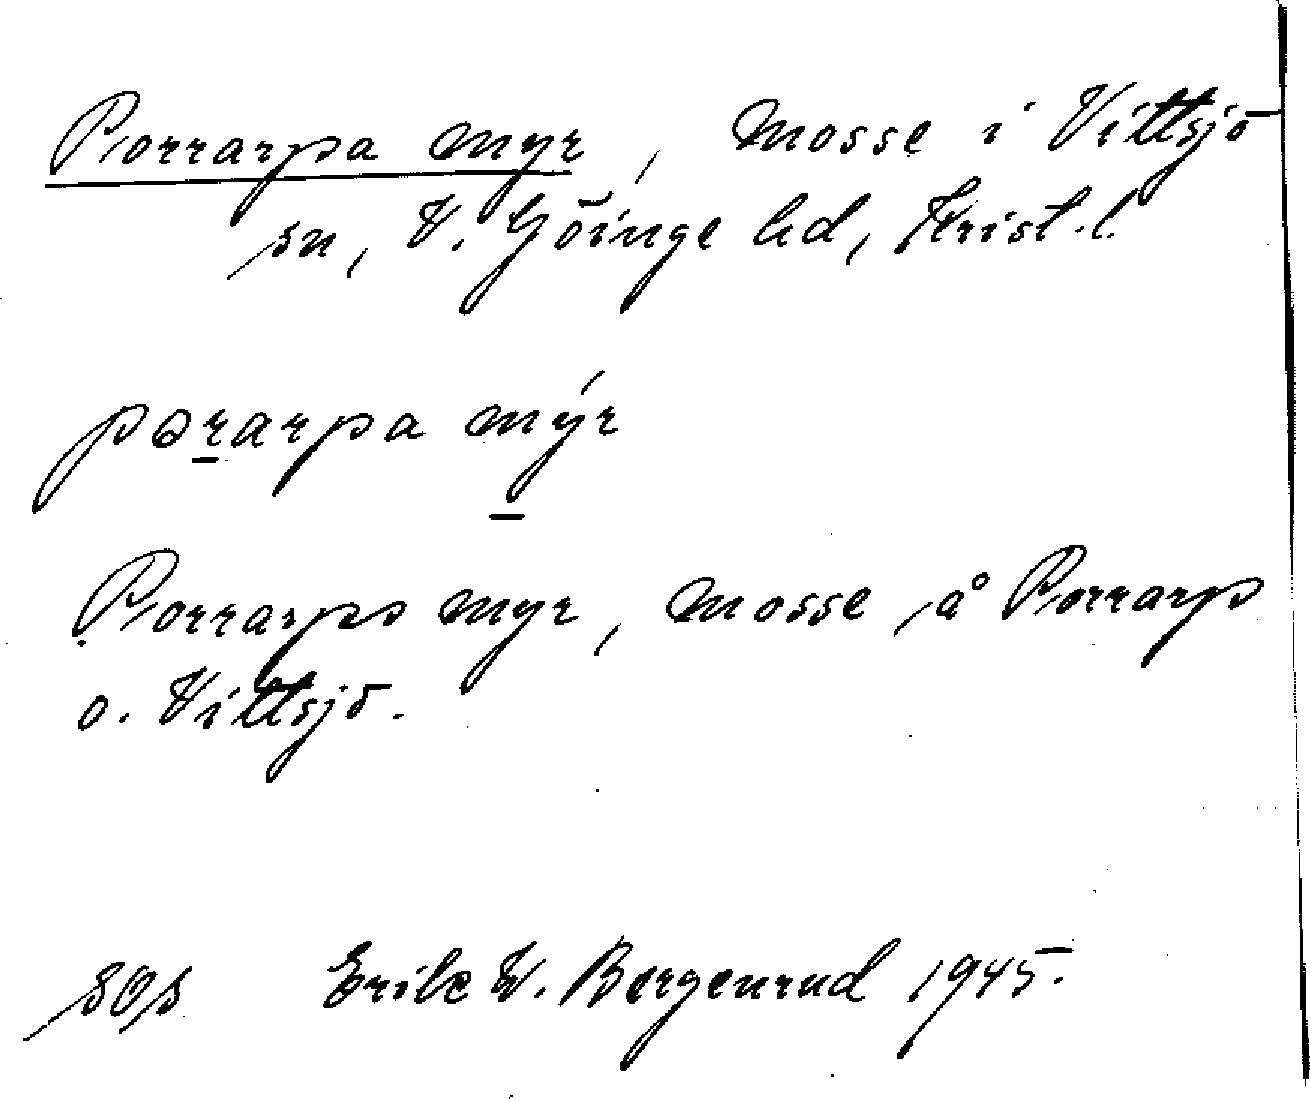 Porrarpa myr, Mosse i Vittsjö
sn, V. Göinge hd, Krist.l.
pɔrarpa mýr
Porrarps myr, mosse på Porrarp
o. Vittsjö.
sos Erik W. Bergenrud 1945.